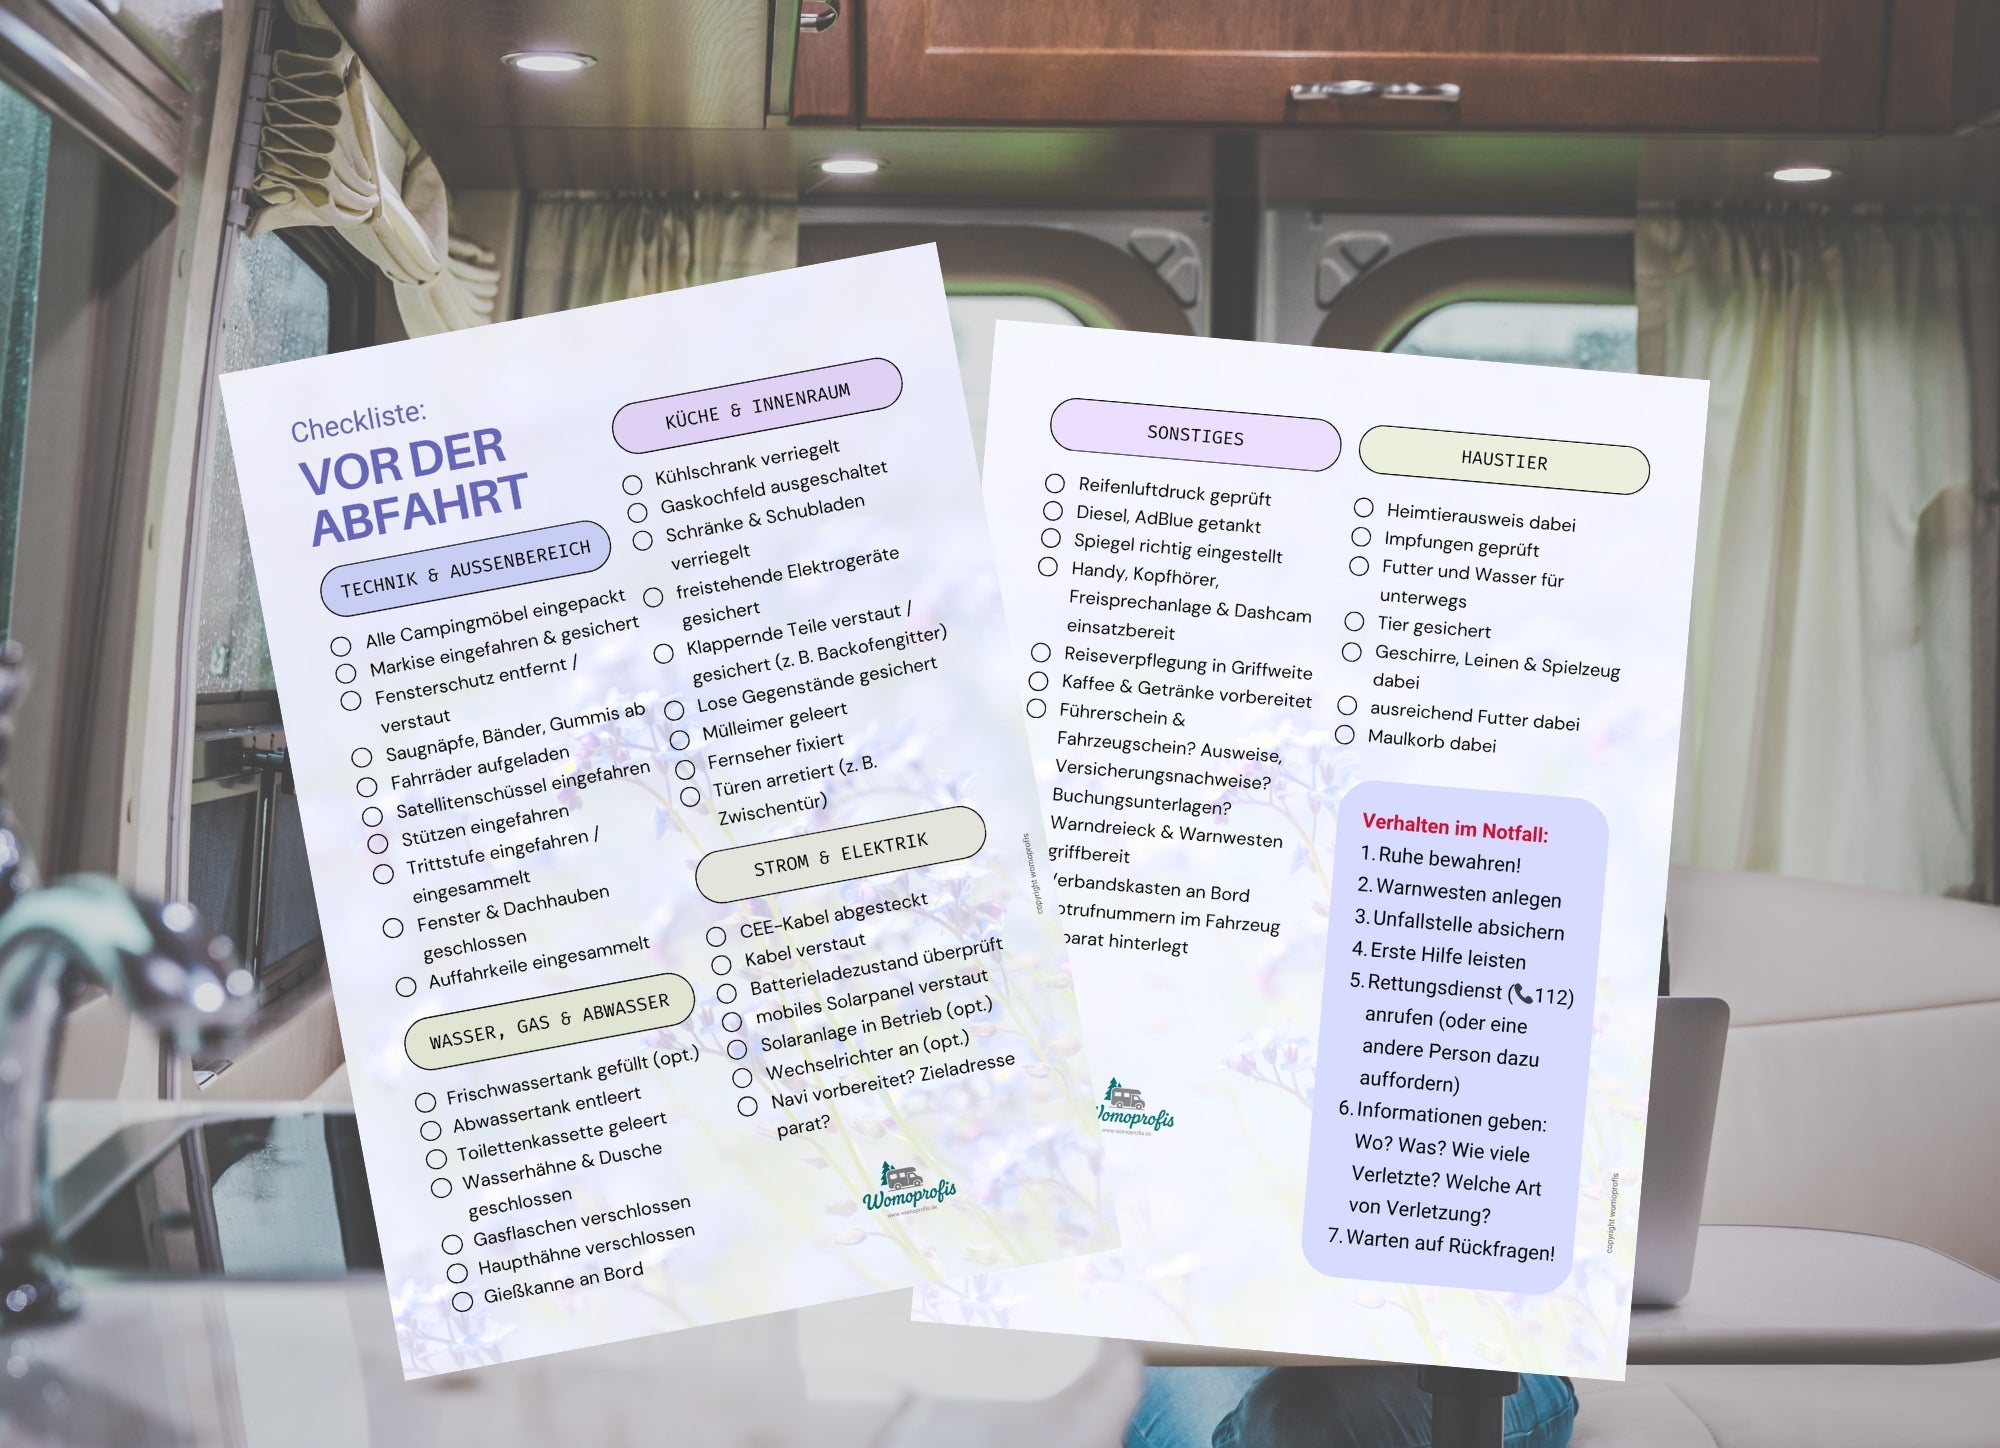 Checkliste:
VOR DER
ABFAHRT
TECHNIK & AUSSENBEREICH
Alle Campingmöbel eingepackt
Markise eingefahren & gesichert
Fensterschutz entfernt /
verstaut
Saugnäpfe, Bänder, Gummis ab
Fahrräder aufgeladen
Satellitenschüssel eingefahren
Stützen eingefahren
Trittstufe eingefahren /
eingesammelt
Fenster & Dachhauben
geschlossen
Auffahrkeile eingesammelt
WASSER, GAS & ABWASSER
Frischwassertank gefüllt (opt.)
Abwassertank entleert
Toilettenkassette geleert
Wasserhähne & Dusche
geschlossen
Gasflaschen verschlossen
Haupthähne verschlossen
Gießkanne an Bord
KÜCHE & INNENRAUM
Kühlschrank verriegelt
Gaskochfeld ausgeschaltet
Schränke & Schubladen
verriegelt
freistehende Elektrogeräte
gesichert
Klappernde Teile verstaut /
gesichert (z. B. Backofengitter)
Lose Gegenstände gesichert
Mülleimer geleert
Fernseher fixiert
Türen arretiert (z. B.
Zwischentür)
STROM & ELEKTRIK
CEE-Kabel abgesteckt
Kabel verstaut
Batterieladezustand überprüft
mobiles Solarpanel verstaut
Solaranlage in Betrieb (opt.)
Wechselrichter an (opt.)
Navi vorbereitet? Zieladresse
parat?
Womoprofis
www.womoprofis.de
copyright womoprofis
SONSTIGES
Reifenluftdruck geprüft
Diesel, AdBlue getankt
Spiegel richtig eingestellt
Handy, Kopfhörer,
Freisprechanlage & Dashcam
einsatzbereit
Reiseverpflegung in Griffweite
Kaffee & Getränke vorbereitet
Führerschein &
Fahrzeugschein? Ausweise,
Versicherungsnachweise?
Buchungsunterlagen?
Warndreieck & Warnwesten
griffbereit
erbandskasten an Bord
otrufnummern im Fahrzeug
parat hinterlegt
Womoprofis
www.womoprofis.de
HAUSTIER
Heimtierausweis dabei
Impfungen geprüft
Futter und Wasser für
unterwegs
Tier gesichert
Geschirre, Leinen & Spielzeug
dabei
ausreichend Futter dabei
Maulkorb dabei
Verhalten im Notfall:
1. Ruhe bewahren!
2. Warnwesten anlegen
3. Unfallstelle absichern
4. Erste Hilfe leisten
5. Rettungsdienst (📞112)
anrufen (oder eine
andere Person dazu
auffordern)
6. Informationen geben:
Wo? Was? Wie viele
Verletzte? Welche Art
von Verletzung?
7. Warten auf Rückfragen!
copyright womoprofis